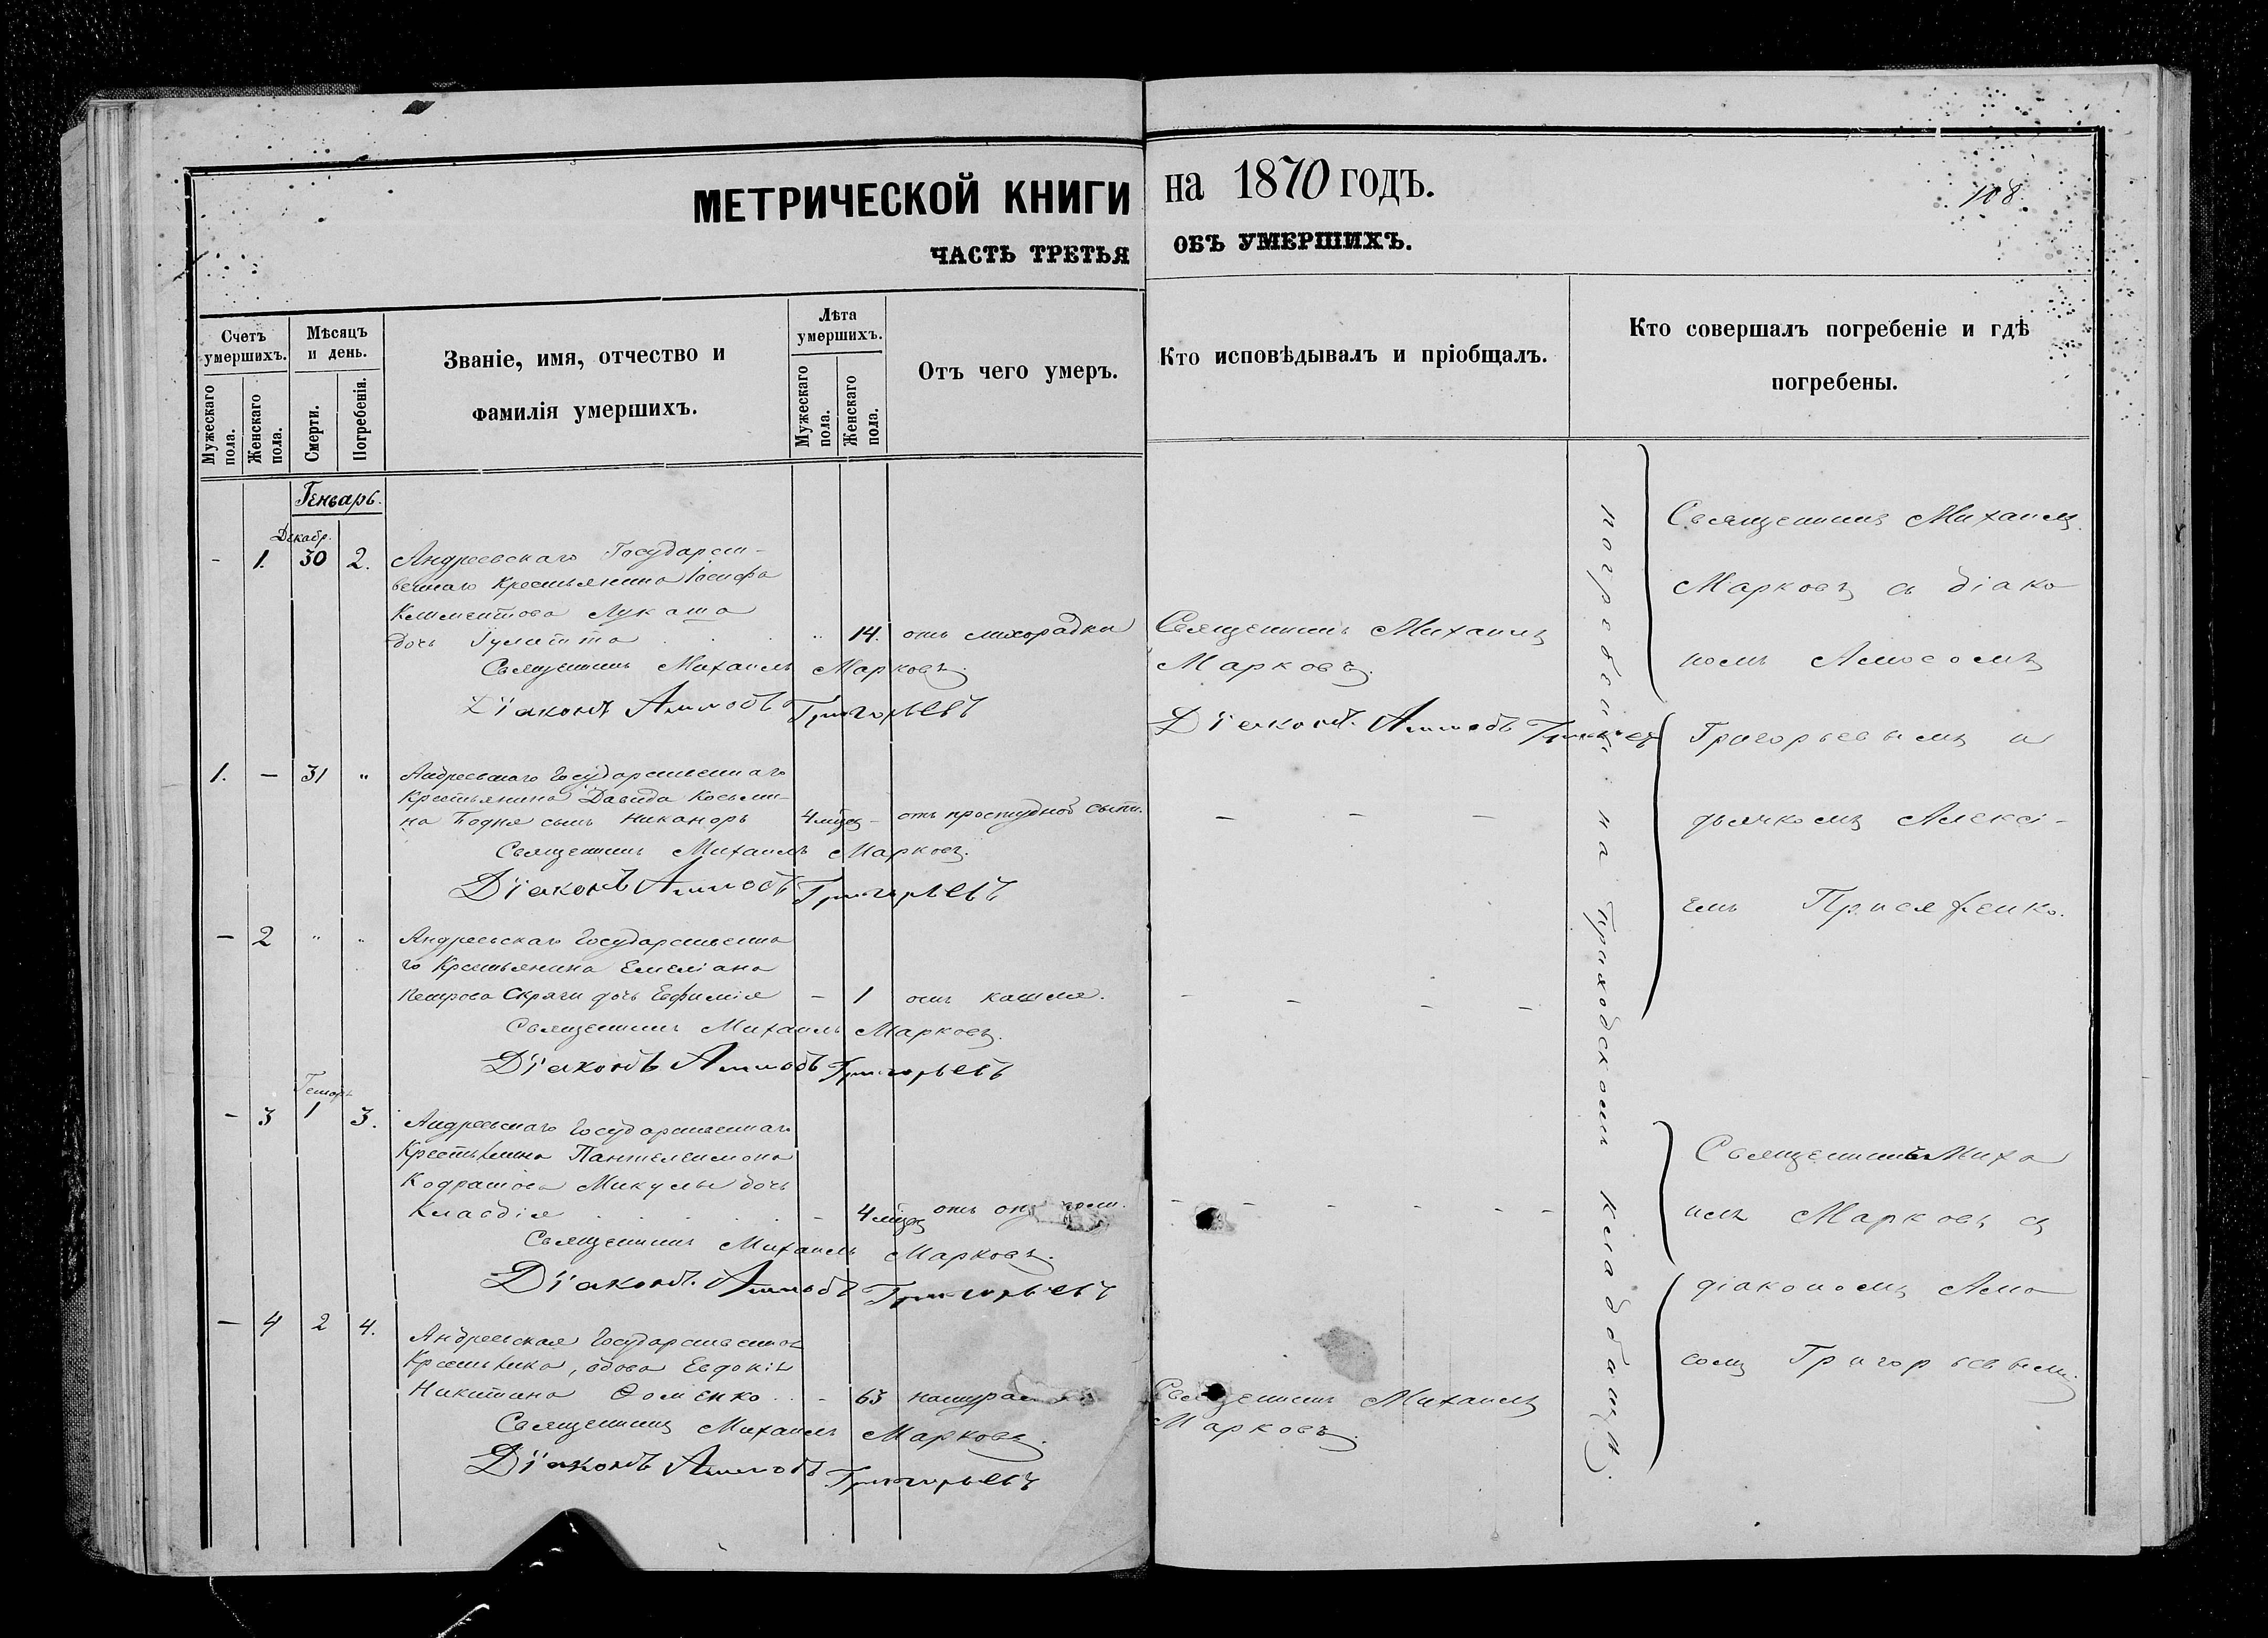 МЕТРИЧЕСКОЙ КНИГИ на 1870 ГОДЪ.
108.
ЧАСТЬ ТРЕТЬЯ ОБЪ УМЕРШИХЪ.
Счетъ умершихъ.
Мужескаго пола.
Женскаго пола.
Мѣсяцъ и день.
Смерти.
Погребенія.
Званіе, имя, отчество и
фамилія умершихъ.
Лѣта умершихъ.
Мужескаго пола.
Женскаго пола.
Отъ чего умеръ.
Кто исповѣдывалъ и пріобщалъ.
Кто совершалъ погребеніе и гдѣ
погребены.
Генварь.
Декабр.
- 1. 30 2. Андреевскаго Государст-
веннаго Крестьянина Іосифа
Климентова Лукаша
дочь Іулитта " 14. отъ лихорадки
Священникъ Михаилъ Марковъ.
Діаконъ Аммосъ Григорьевъ
1. - 31 " Андреевскаго Государственнаго
Крестьянина Давида Косьми-
на сынъ Никаноръ 4 мѣсяц - отъ простудной сыпи.
Священникъ Михаилъ Марковъ.
Діаконъ Аммосъ Григорьевъ
- 2 " " Андреевскаго Государственна
го Крестьянина Емеліана
Петрова Скряги дочь Евфимія - 1 отъ кашля.
Священникъ Михаилъ Марковъ.
Діаконъ Аммосъ Григорьевъ
Генварь
- 3 1 3. Андреевскаго Государственнаго
Крестьянина Пантелеимона
Кодратова Микулы дочь
Клавдія - 4 мѣсяц отъ
Священникъ Михаилъ Марковъ.
Діаконъ Аммосъ Григорьевъ
- 4 2 4. Андреевская Государственная
Крестьянка, вдова Евдокія
Никитина Фоменко - 63
Священникъ Михаилъ Марковъ.
Діаконъ Аммосъ Григорьевъ
Священникъ Михаилъ
Марковъ.
Діаконъ Аммосъ Григорьевъ
- - -
- - - -
- - - - - -
Священникъ Михаилъ
Марковъ.
погребены на Приходскомъ кладбищѣ.
Священникъ Михаилъ
Марковъ съ діако
номъ Амосомъ
Григорьевымъ и
дьячкомъ Алексі-
емъ Присяженко.
Священникъ Миха
илъ Марковъ съ
діакономъ Амо
сомъ Григорьевымъ.